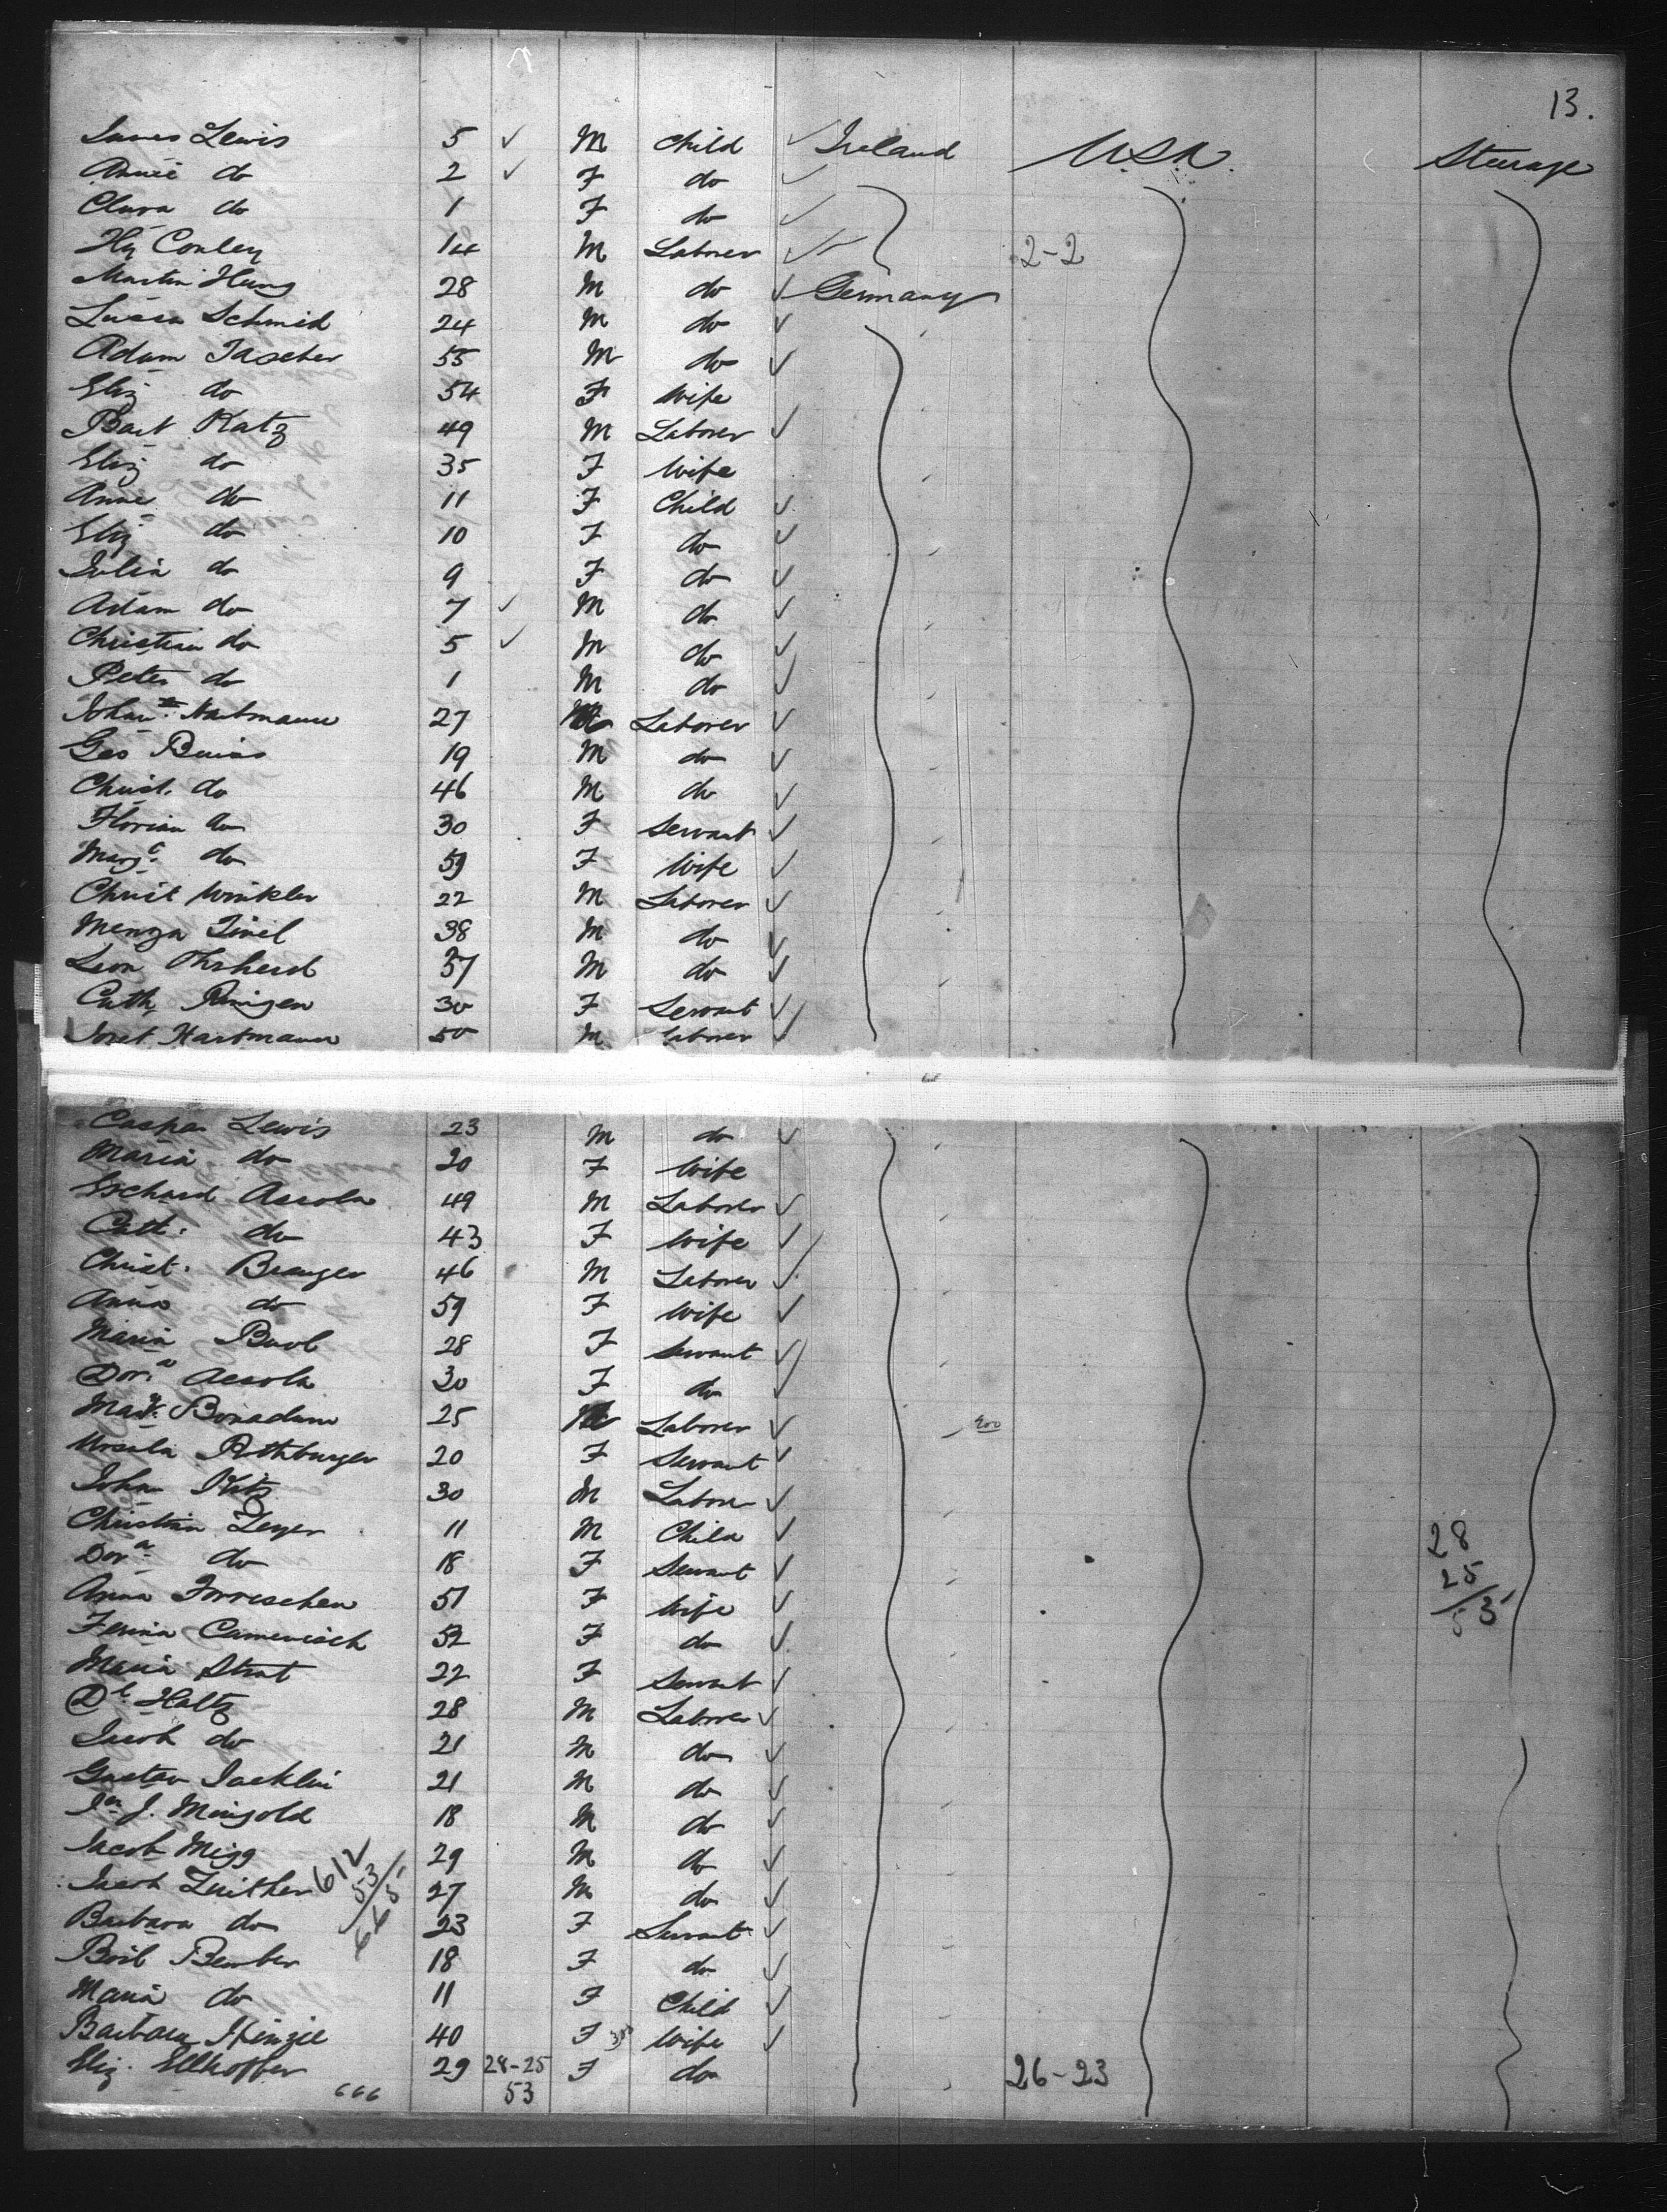 13.
James Lewis 5 ✓ M Child ✓ Ireland U.S.A. Steerage
Annie do 2 ✓ F do ✓
Clara do 1 F do ✓
Hy Conley 14 M Laborer ✓ 2-2
Martin Hung 28 M do ✓ Germany
Schmid 24 M do ✓
Adam Tascher 55 M do ✓
Eliz do 54 F Wife
Bart Katz 49 M Laborer ✓
Eliz do 35 F Wife
Anna do 11 F Child ✓
Eliz do 10 F do ✓
Julia do 9 F do ✓
Adam do 7 ✓ M do ✓
Christian do 5 ✓ M do ✓
Peter do 1 M do ✓
Johan Hartmann 27 M Laborer ✓
Geo 19 M do ✓
Christ. do 46 M do ✓
Florian do 30 F Servant ✓
Marg. do 59 F Wife ✓
Christ Winkler 22 M Laborer ✓
38 M do ✓
Leon 37 M do ✓
Cath 30 F Servant ✓
Hartmann 50 M Laborer ✓
Caspar Lewis 23 M do ✓
Maria do 20 F Wife
Accola 49 M Laborer ✓
Cath. do 43 F Wife ✓
Christ. Branger 46 M Laborer ✓
Anna do 59 F Wife ✓
Maria Buol 28 F Servant ✓
Dor.a Accola 30 F do ✓
Bonadurer 25 M Laborer ✓
Ursula Rothburger 20 F Servant ✓
Johan 30 M Laborer ✓
Christian Zeyer 11 M Child ✓
Dor.a do 18 F Servant ✓
Anna 51 F Wife ✓
Camenisch 52 F do ✓
Maria Strat 22 F Servant ✓
Holtz 28 M Laborer ✓
Jacob do 21 M do ✓
Gustav Jacklin 21 M do ✓
J. Mingold 18 M do ✓
Jacob Migg 29 M do ✓
Jacob 27 M do ✓
Barbara do 23 F Servant ✓
Bember 18 F do ✓
Maria do 11 F Child ✓
Barbara 40 F Wife ✓
Eliz. Ellhoffer 29 28-25 F do 26-23
53
666
612
53
665
28
25
53